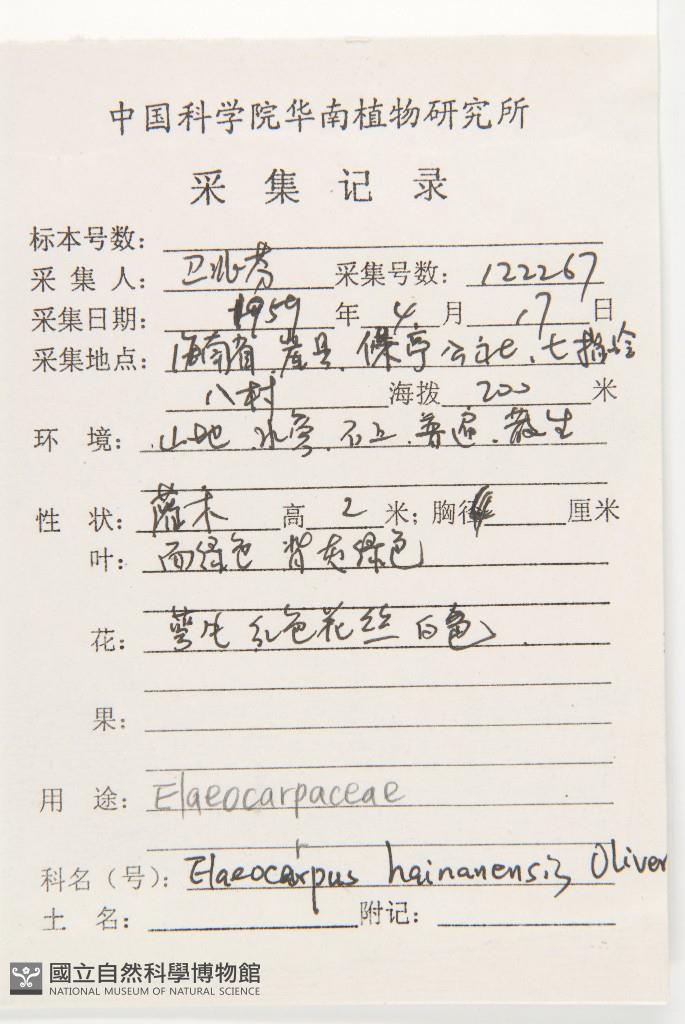 中国科学院华南植物研究所
采集记录
标本号数:
采集人: 卫兆芬 采集号数: 122267
采集日期: 1959 年 4 月 17 日
采集地点: 海南省 崖县. 保亭公社. 七指岭
八村 海拔 200 米
环境: 山地 水旁. 石上. 普遍. 散生
性状: 灌木 高 2 米; 胸径 厘米
叶: 面绿色 背灰绿色
花: 萼片红色花丝白色.
果:
用途: Elaeocarpaceae
科名(号): Elaeocarpus hainanensis Oliver
土名: 附记:
國立自然科學博物館
NATIONAL MUSEUM OF NATURAL SCIENCE